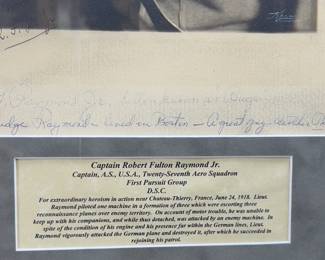 Raymond Jr.
Judge Raymond - lived in Boston - A great guy
Captain Robert Fulton Raymond Jr.
Captain, A.S., U.S.A., Twenty-Seventh Aero Squadron
First Pursuit Group
D.S.C.
For extraordinary heroism in action near Chateau-Thierry, France, June 24, 1918. Lieut.
Raymond piloted one machine in a formation of three which were escorting three
reconnaissance planes over enemy territory. On account of motor trouble, he was unable to
keep up with his companions, and while thus detached, was attacked by an enemy machine. In
spite of the condition of his engine and his presence far within the German lines, Lieut.
Raymond vigorously attacked the German plane and destroyed it, after which he succeeded in
rejoining his patrol.